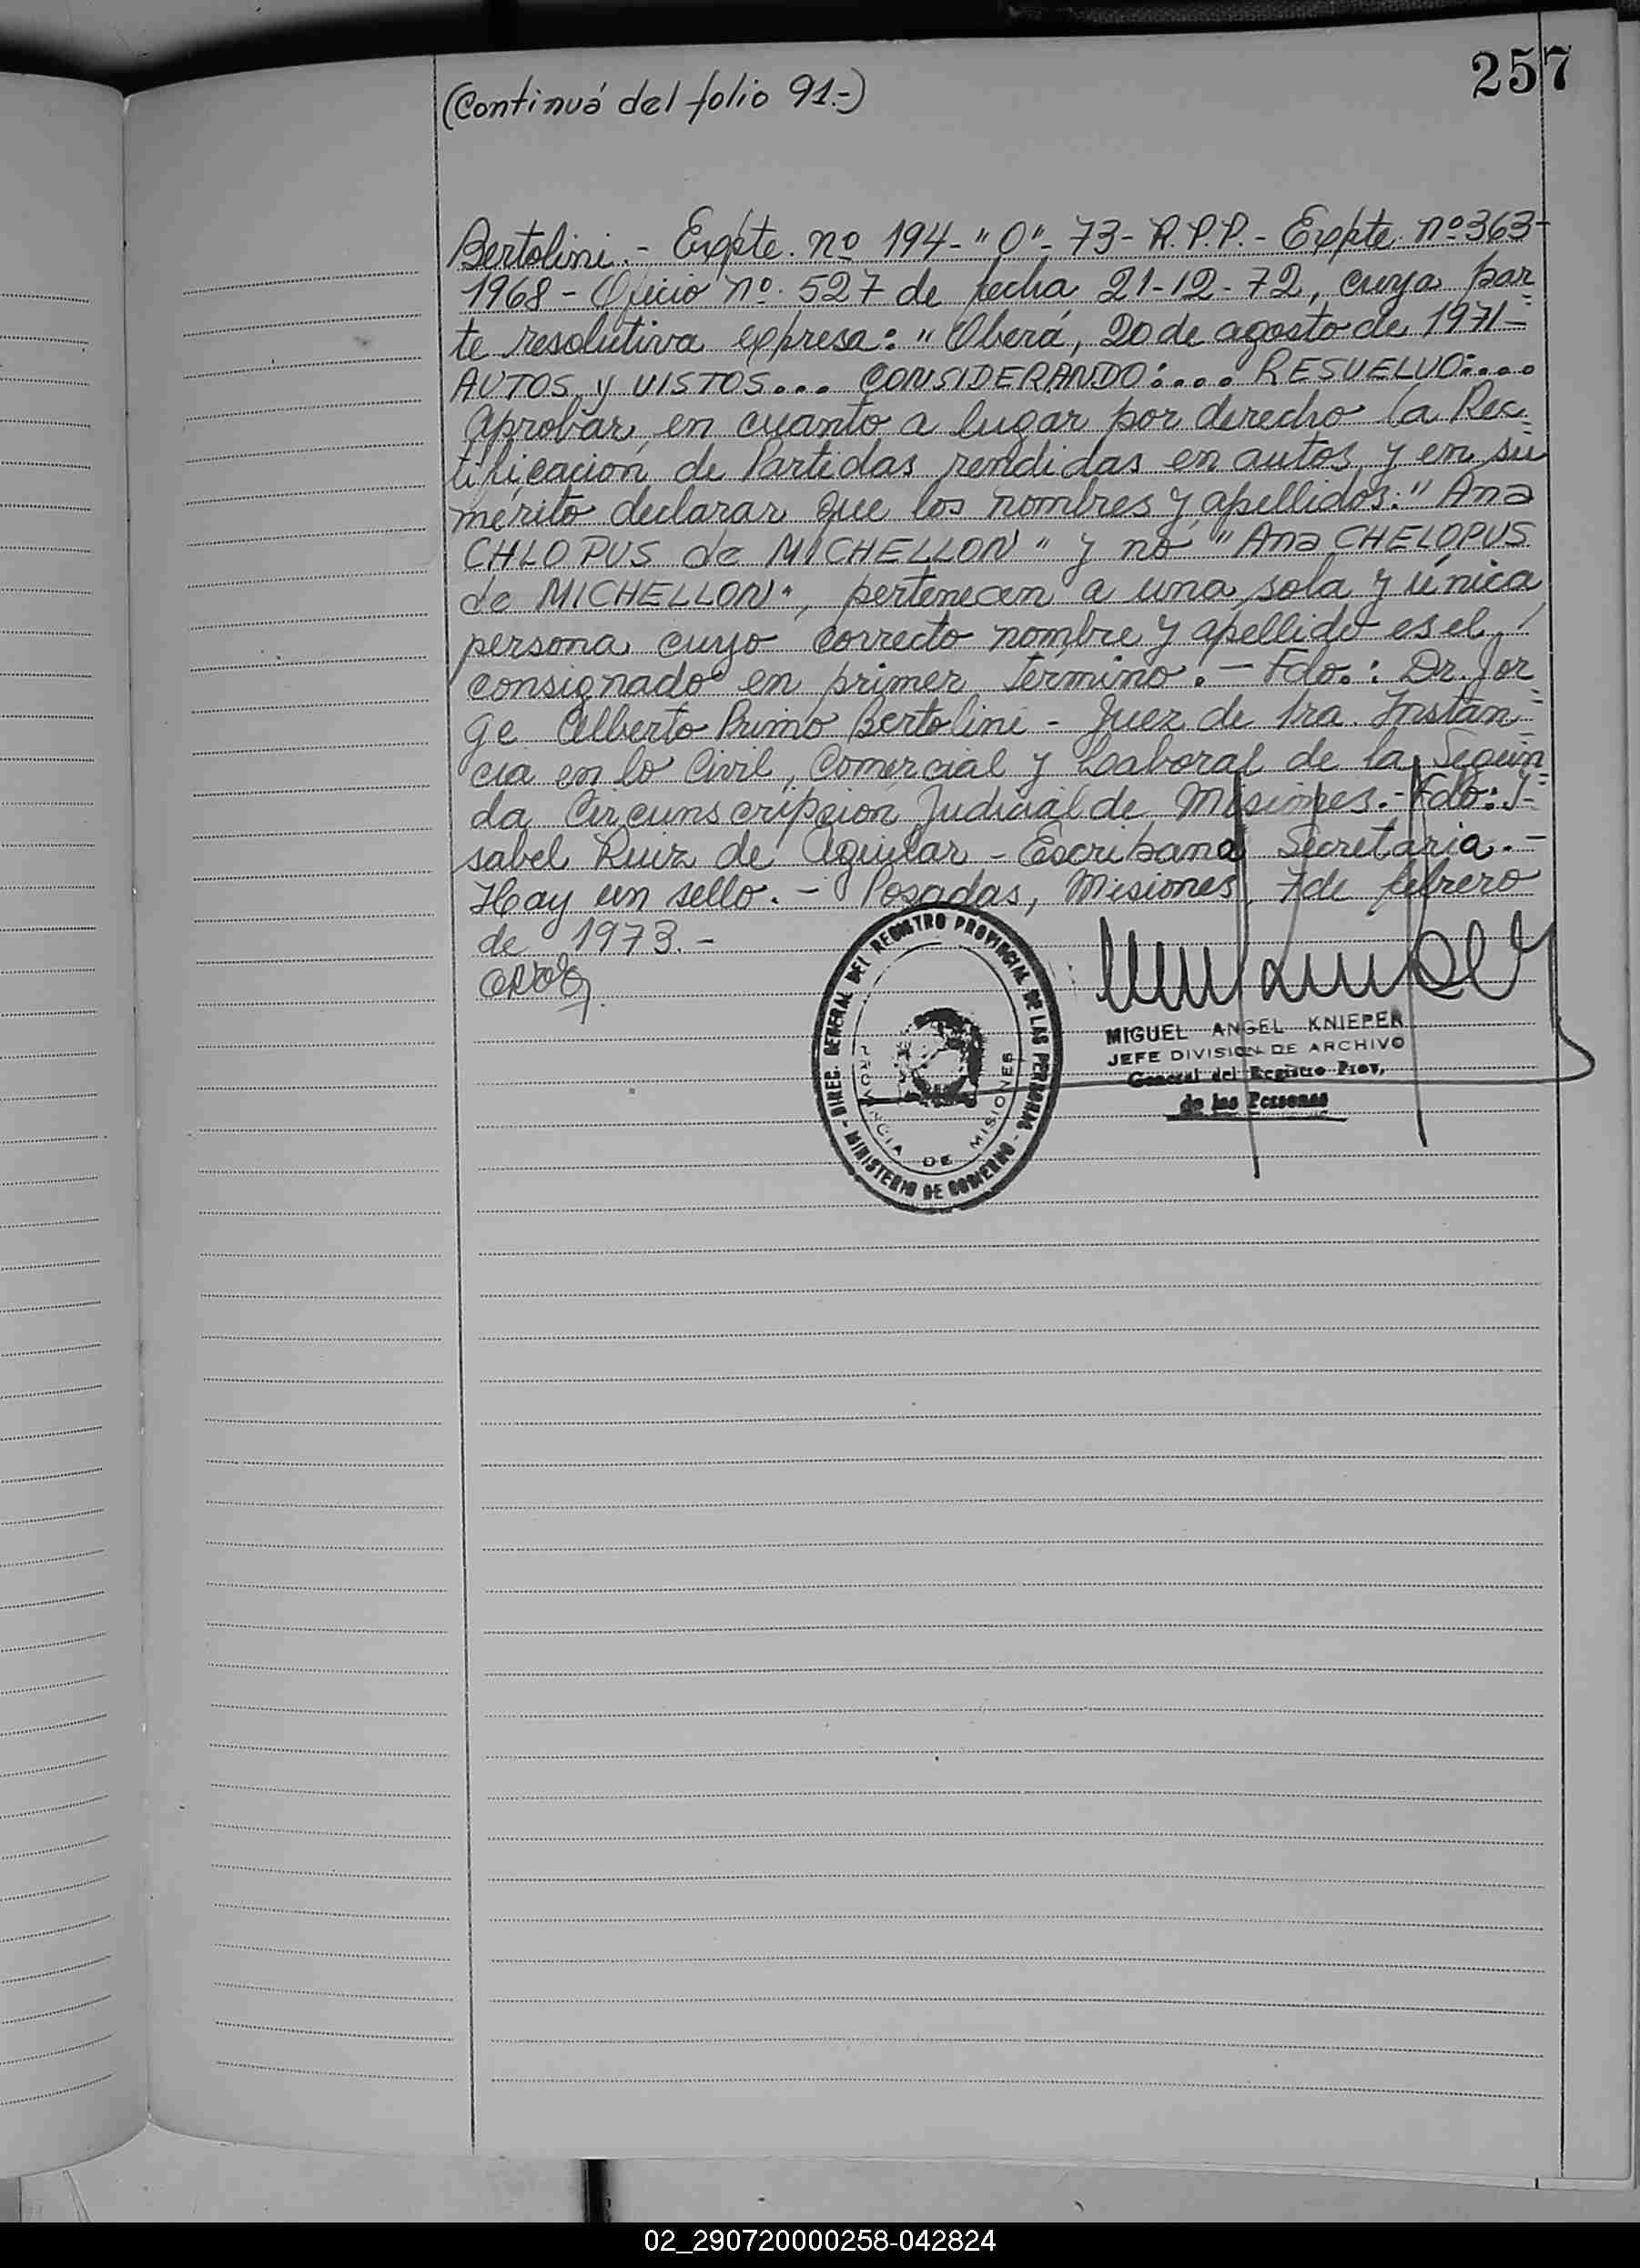 257
(Continuá del folio 91.-)
Bertolini.- Expte. nº 194-"O"- 73- R.P.P.- Expte. nº 363-
1968 - Oficio nº 527 de fecha 21-12-72, cuya par=
te resolutiva expresa: "Oberá, 20 de agosto de 1971-
AUTOS y VISTOS... CONSIDERANDO:.... RESUELVO:....
Aprobar en cuanto a lugar por derecho la Rec=
tificación de Partidas rendidas en autos, y en su
mérito declarar que los nombres y apellidos: "Ana
CHLOPUS de MICHELLON" y no "Ana CHELOPUS
de MICHELLON", pertenecen a una sola y única
persona cuyo correcto nombre y apellido es el
consignado en primer término.- Fdo.: Dr. Jor=
ge Alberto Primo Bertolini - Juez de 1ra. Instan=
cia en lo Civil, Comercial y Laboral de la Segun=
da Circunscripción Judicial de Misiones.- Fdo: I-
sabel Ruiz de Aguilar - Escribana Secretaria.-
Hay un sello.- Posadas, Misiones, 7 de febrero
de 1973.-
DIREC. GENERAL DEL REGISTRO PROVINCIAL DE LAS PERSONAS
- MINISTERIO DE GOBIERNO -
PROVINCIA DE MISIONES
MIGUEL ANGEL KNIEPER
JEFE DIVISION DE ARCHIVO
General del Registro Prov.
de las Personas
02_290720000258-042824